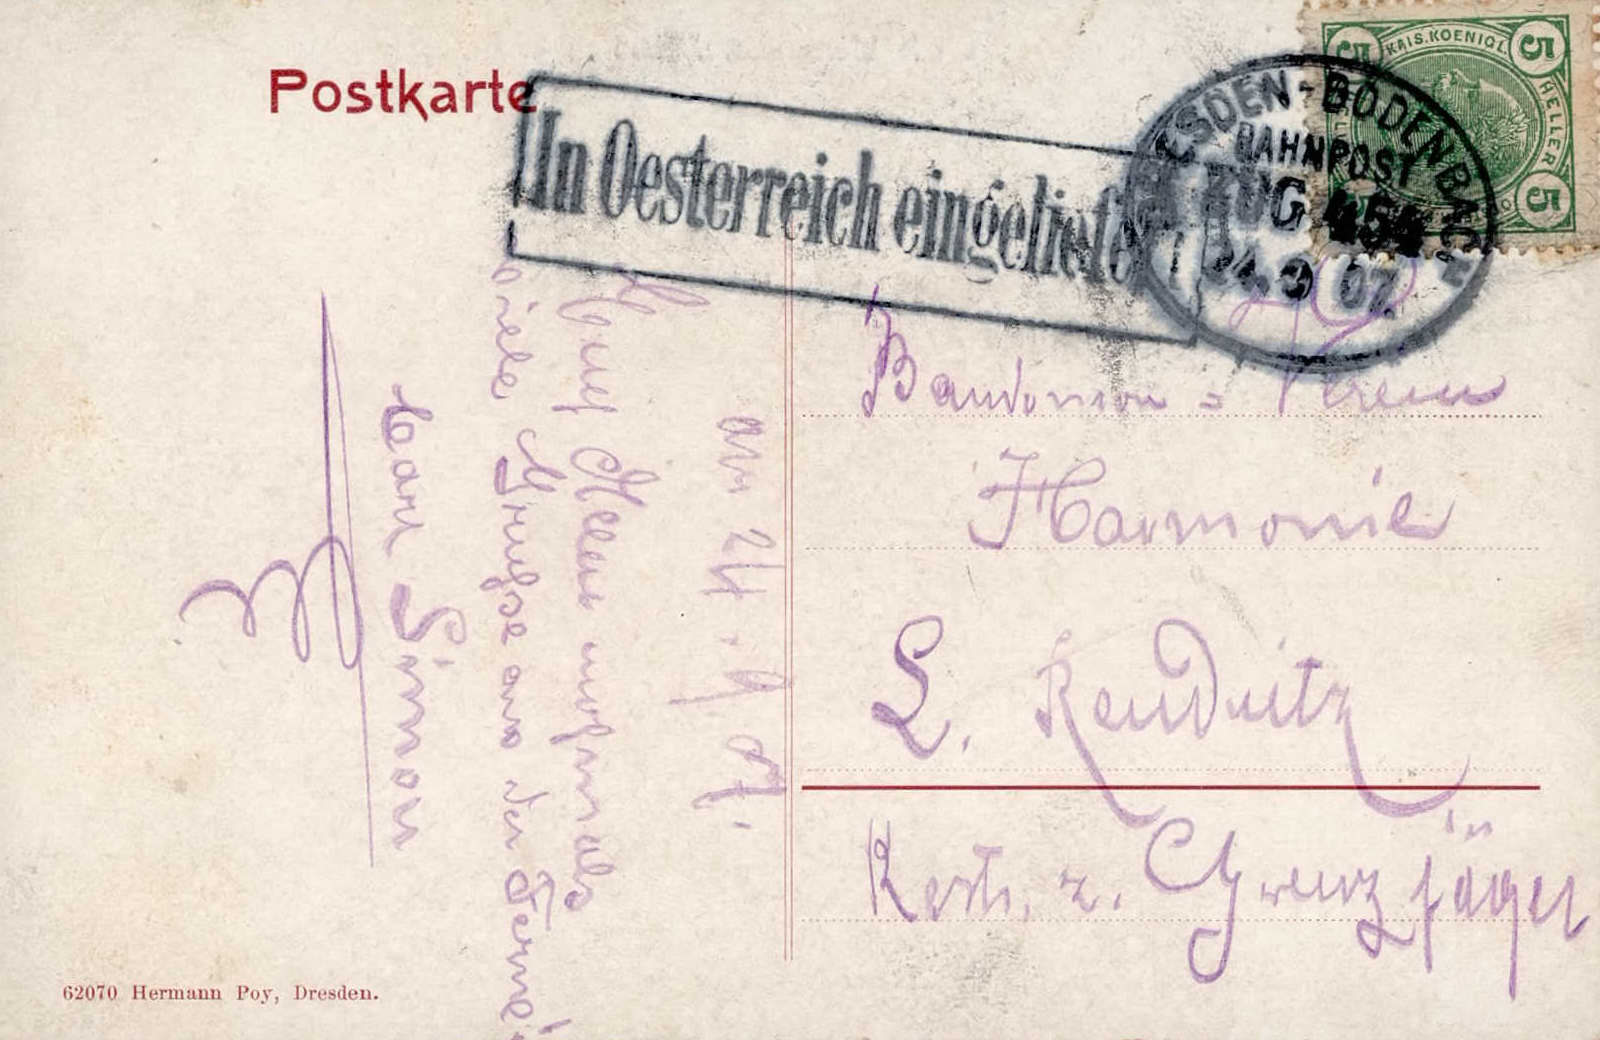 Postkarte
In Oesterreich eingeliefe
ESDEN-BODENBACH
BAHNPOST
ZUG 454
24.9 07
KAIS.KOENIGL.
5
5
5
HELLER
Bandonion = Verein
Harmonie
L. Reudnitz
Restr. z. Grenzjäger
in
am 24.
Euch Allen nochmals
viele Grüße aus der Ferne!
Carl Simon
62070 Hermann Poy, Dresden.